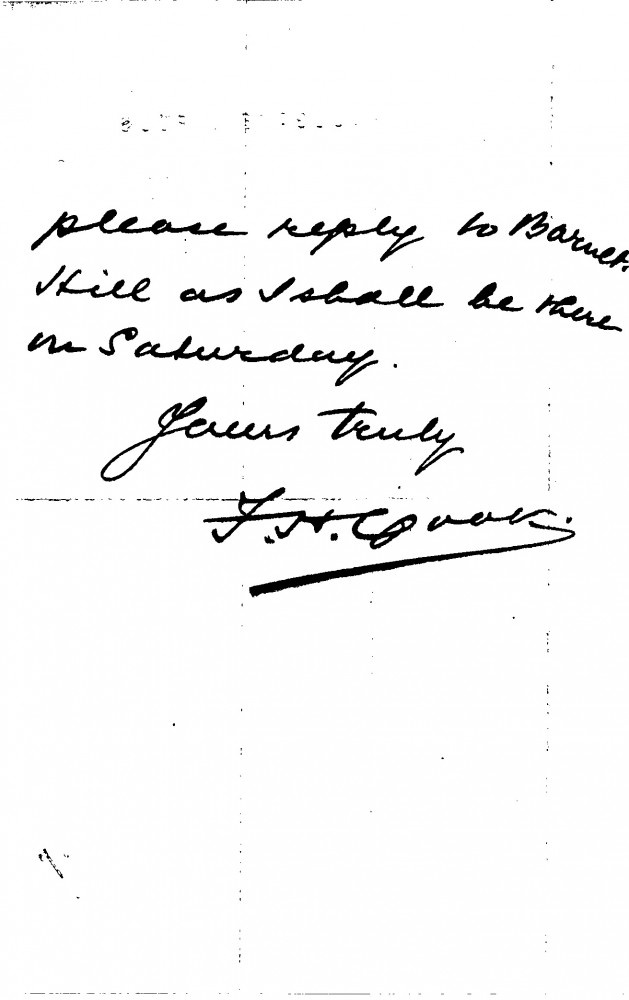 please reply to Barnett
Hill as I shall be there
on Saturday.
Yours truly
F.H. Cook.